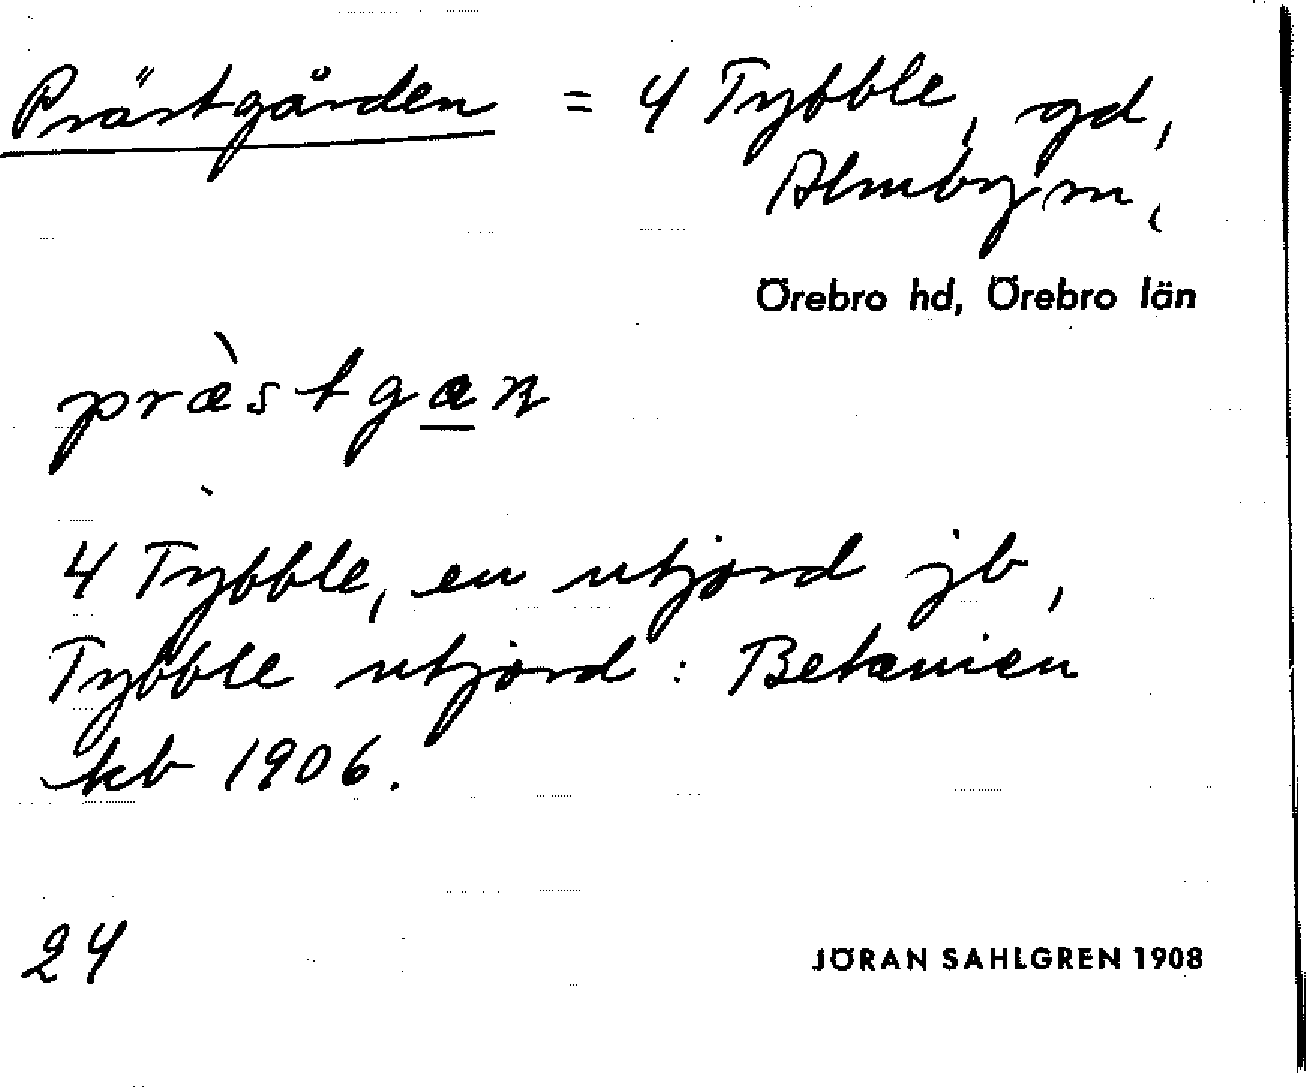 Prästgården = 4 Tybble, gd,
Almby sn,
Örebro hd, Örebro län
præ̀stgæn
4 Tybble, en utjord jb,
Tybble utjord: Betanien
kb 1906.
24
JÖRAN SAHLGREN 1908